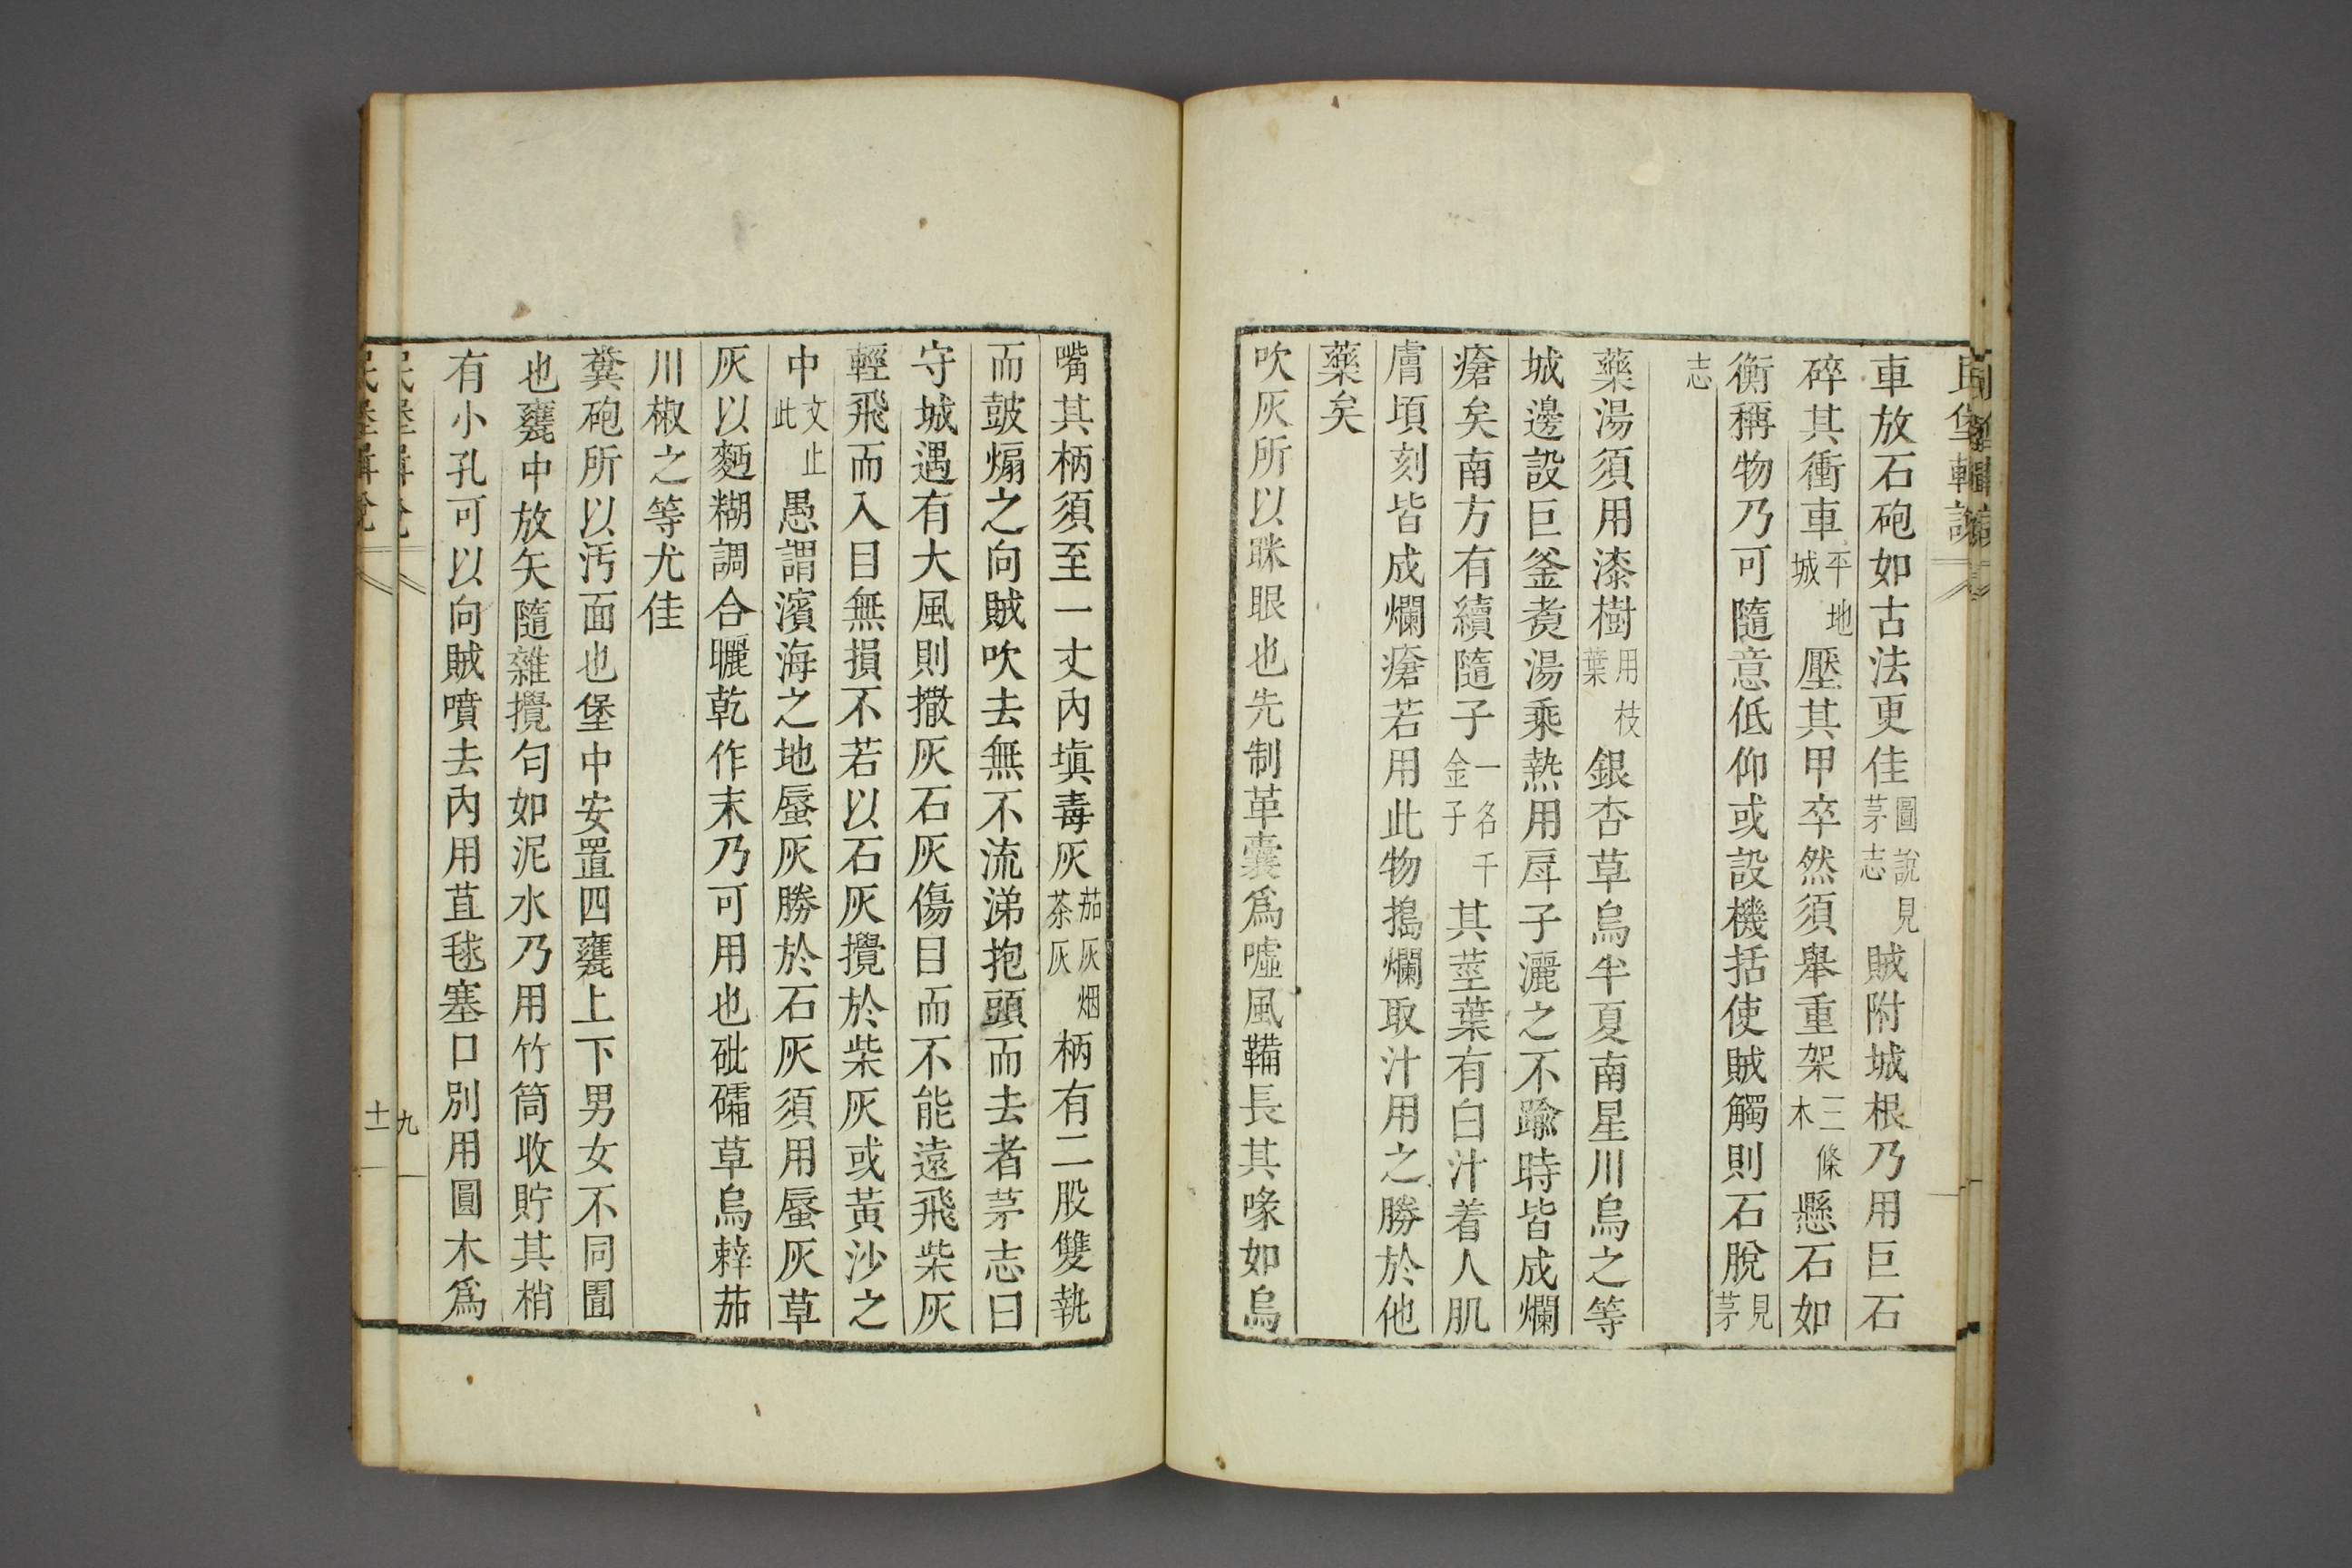 車放石砲如古法更佳圖說見茅志賊附城根乃用巨石
碎其衝車平地城壓其甲卒然須舉重架三條木懸石如
衡稱物乃可隨意低仰或設機括使賊觸則石脫見茅
志
藥湯須用漆樹用枝葉銀杏草烏半夏南星川烏之等
城邊設巨釜煑湯乘熱用戽子灑之不踰時皆成爛
瘡矣南方有續隨子一名千金子其莖葉有白汁着人肌
膚頃刻皆成爛瘡若用此物搗爛取汁用之勝於他
藥矣
吹灰所以眯眼也先制革囊爲噓風鞴長其喙如烏
嘴其柄須至一丈內塡毒灰茄灰烟茶灰柄有二股雙執
而皷煽之向賊吹去無不流涕抱頭而去者茅志曰
守城遇有大風則撒灰石灰傷目而不能遠飛柴灰
輕飛而入目無損不若以石灰攪於柴灰或黃沙之
中文止此愚謂濱海之地蜃灰勝於石灰須用蜃灰草
灰以麪糊調合曬乾作末乃可用也砒礵草烏辢茄
川椒之等尤佳
糞砲所以汚面也堡中安置四甕上下男女不同圊
也甕中放矢隨雜攪匀如泥水乃用竹筒收貯其梢
有小孔可以向賊噴去內用苴毬塞口別用圓木爲
九
十一